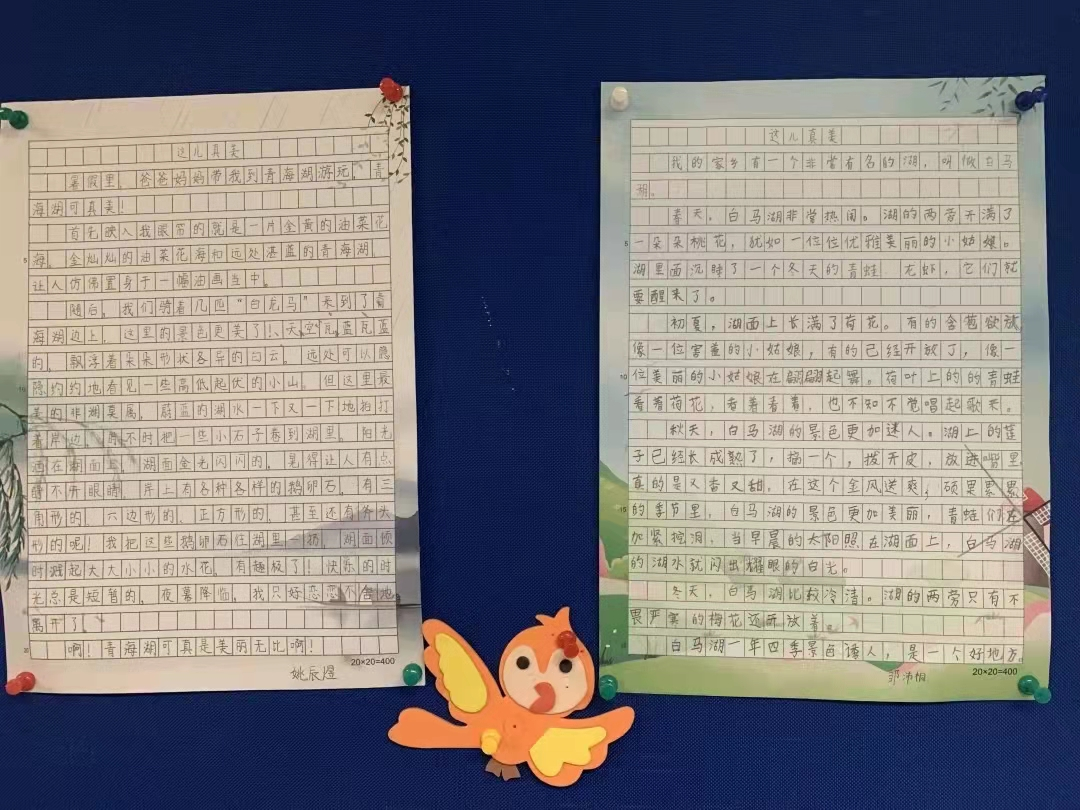 这儿真美
暑假里，爸爸妈妈带我到青海湖游玩，青
海湖可真美！
首先映入我眼帘的就是一片金黄的油菜花
海。金灿灿的油菜花海和远处湛蓝的青海湖，
让人仿佛置身于一幅油画当中。
随后，我们骑着几匹“白龙马”来到了青
海湖边上，这里的景色更美了！天空瓦蓝瓦蓝
的，飘浮着朵朵形状各异的白云。远处可以隐
隐约约地看见一些高低起伏的小山。但这里最
美的非湖莫属，蔚蓝的湖水一下又一下地拍打
着岸边，时不时把一些小石子卷到湖里。阳光
洒在湖面上，湖面金光闪闪的，晃得让人有点
睁不开眼睛。岸上有各种各样的鹅卵石，有三
角形的、六边形的、正方形的，甚至还有斧头
形的呢！我把这些鹅卵石往湖里一扔，湖面顿
时溅起大大小小的水花。有趣极了！快乐的时
光总是短暂的，夜幕降临，我只好恋恋不舍地
离开了。
啊！青海湖可真是美丽无比啊！
姚辰煜
5
10
20
20×20=400
这儿真美
我的家乡有一个非常有名的湖，叫做白马
湖。
春天，白马湖非常热闹。湖的两旁开满了
一朵朵桃花，犹如一位位优雅美丽的小姑娘。
湖里面沉睡了一个冬天的青蛙、龙虾，它们就
要醒来了。
初夏，湖面上长满了荷花。有的含苞欲放，
像一位害羞的小姑娘，有的已经开放了，像一
位美丽的小姑娘在翩翩起舞。荷叶上的的青蛙
看着荷花，看着看着，也不知不觉唱起歌来。
秋天，白马湖的景色更加迷人。湖上的莲
子已经长成熟了，摘一个，拨开皮，放进嘴里
真的是又香又甜，在这个金风送爽，硕果累累
的季节里，白马湖的景色更加美丽，青蛙们在
加紧挖洞，当早晨的太阳照在湖面上，白马湖
的湖水就闪出耀眼的白光。
冬天，白马湖比较冷清。湖的两旁只有不
畏严寒的梅花还开放着。
白马湖一年四季景色诱人，是一个好地方。
5
10
15
20×20=400